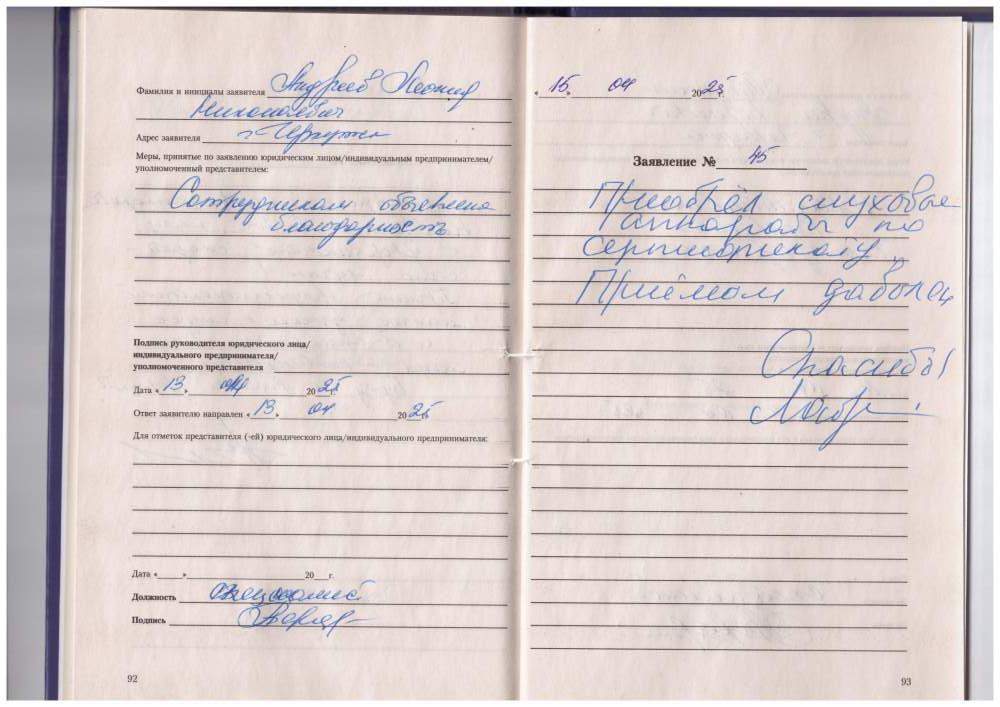 Фамилия и инициалы заявителя Андреев Леонид
Николаевич
Адрес заявителя г.
Меры, принятые по заявлению юридическим лицом/индивидуальным предпринимателем/
уполномоченный представителем:
Сотрудникам объявлена
благодарность
Подпись руководителя юридического лица/
индивидуального предпринимателя/
уполномоченного представителя
Дата «13» 04 2025 г.
Ответ заявителю направлен «13» 04 2025 г.
Для отметок представителя (-ей) юридического лица/индивидуального предпринимателя:
Дата «___»___ 20__ г.
Должность
Подпись
92
«15» 04 2025 г.
Заявление № 45
Приобрёл слуховые
аппараты по
сертификату.
Приёмом доволен
Спасибо!
93